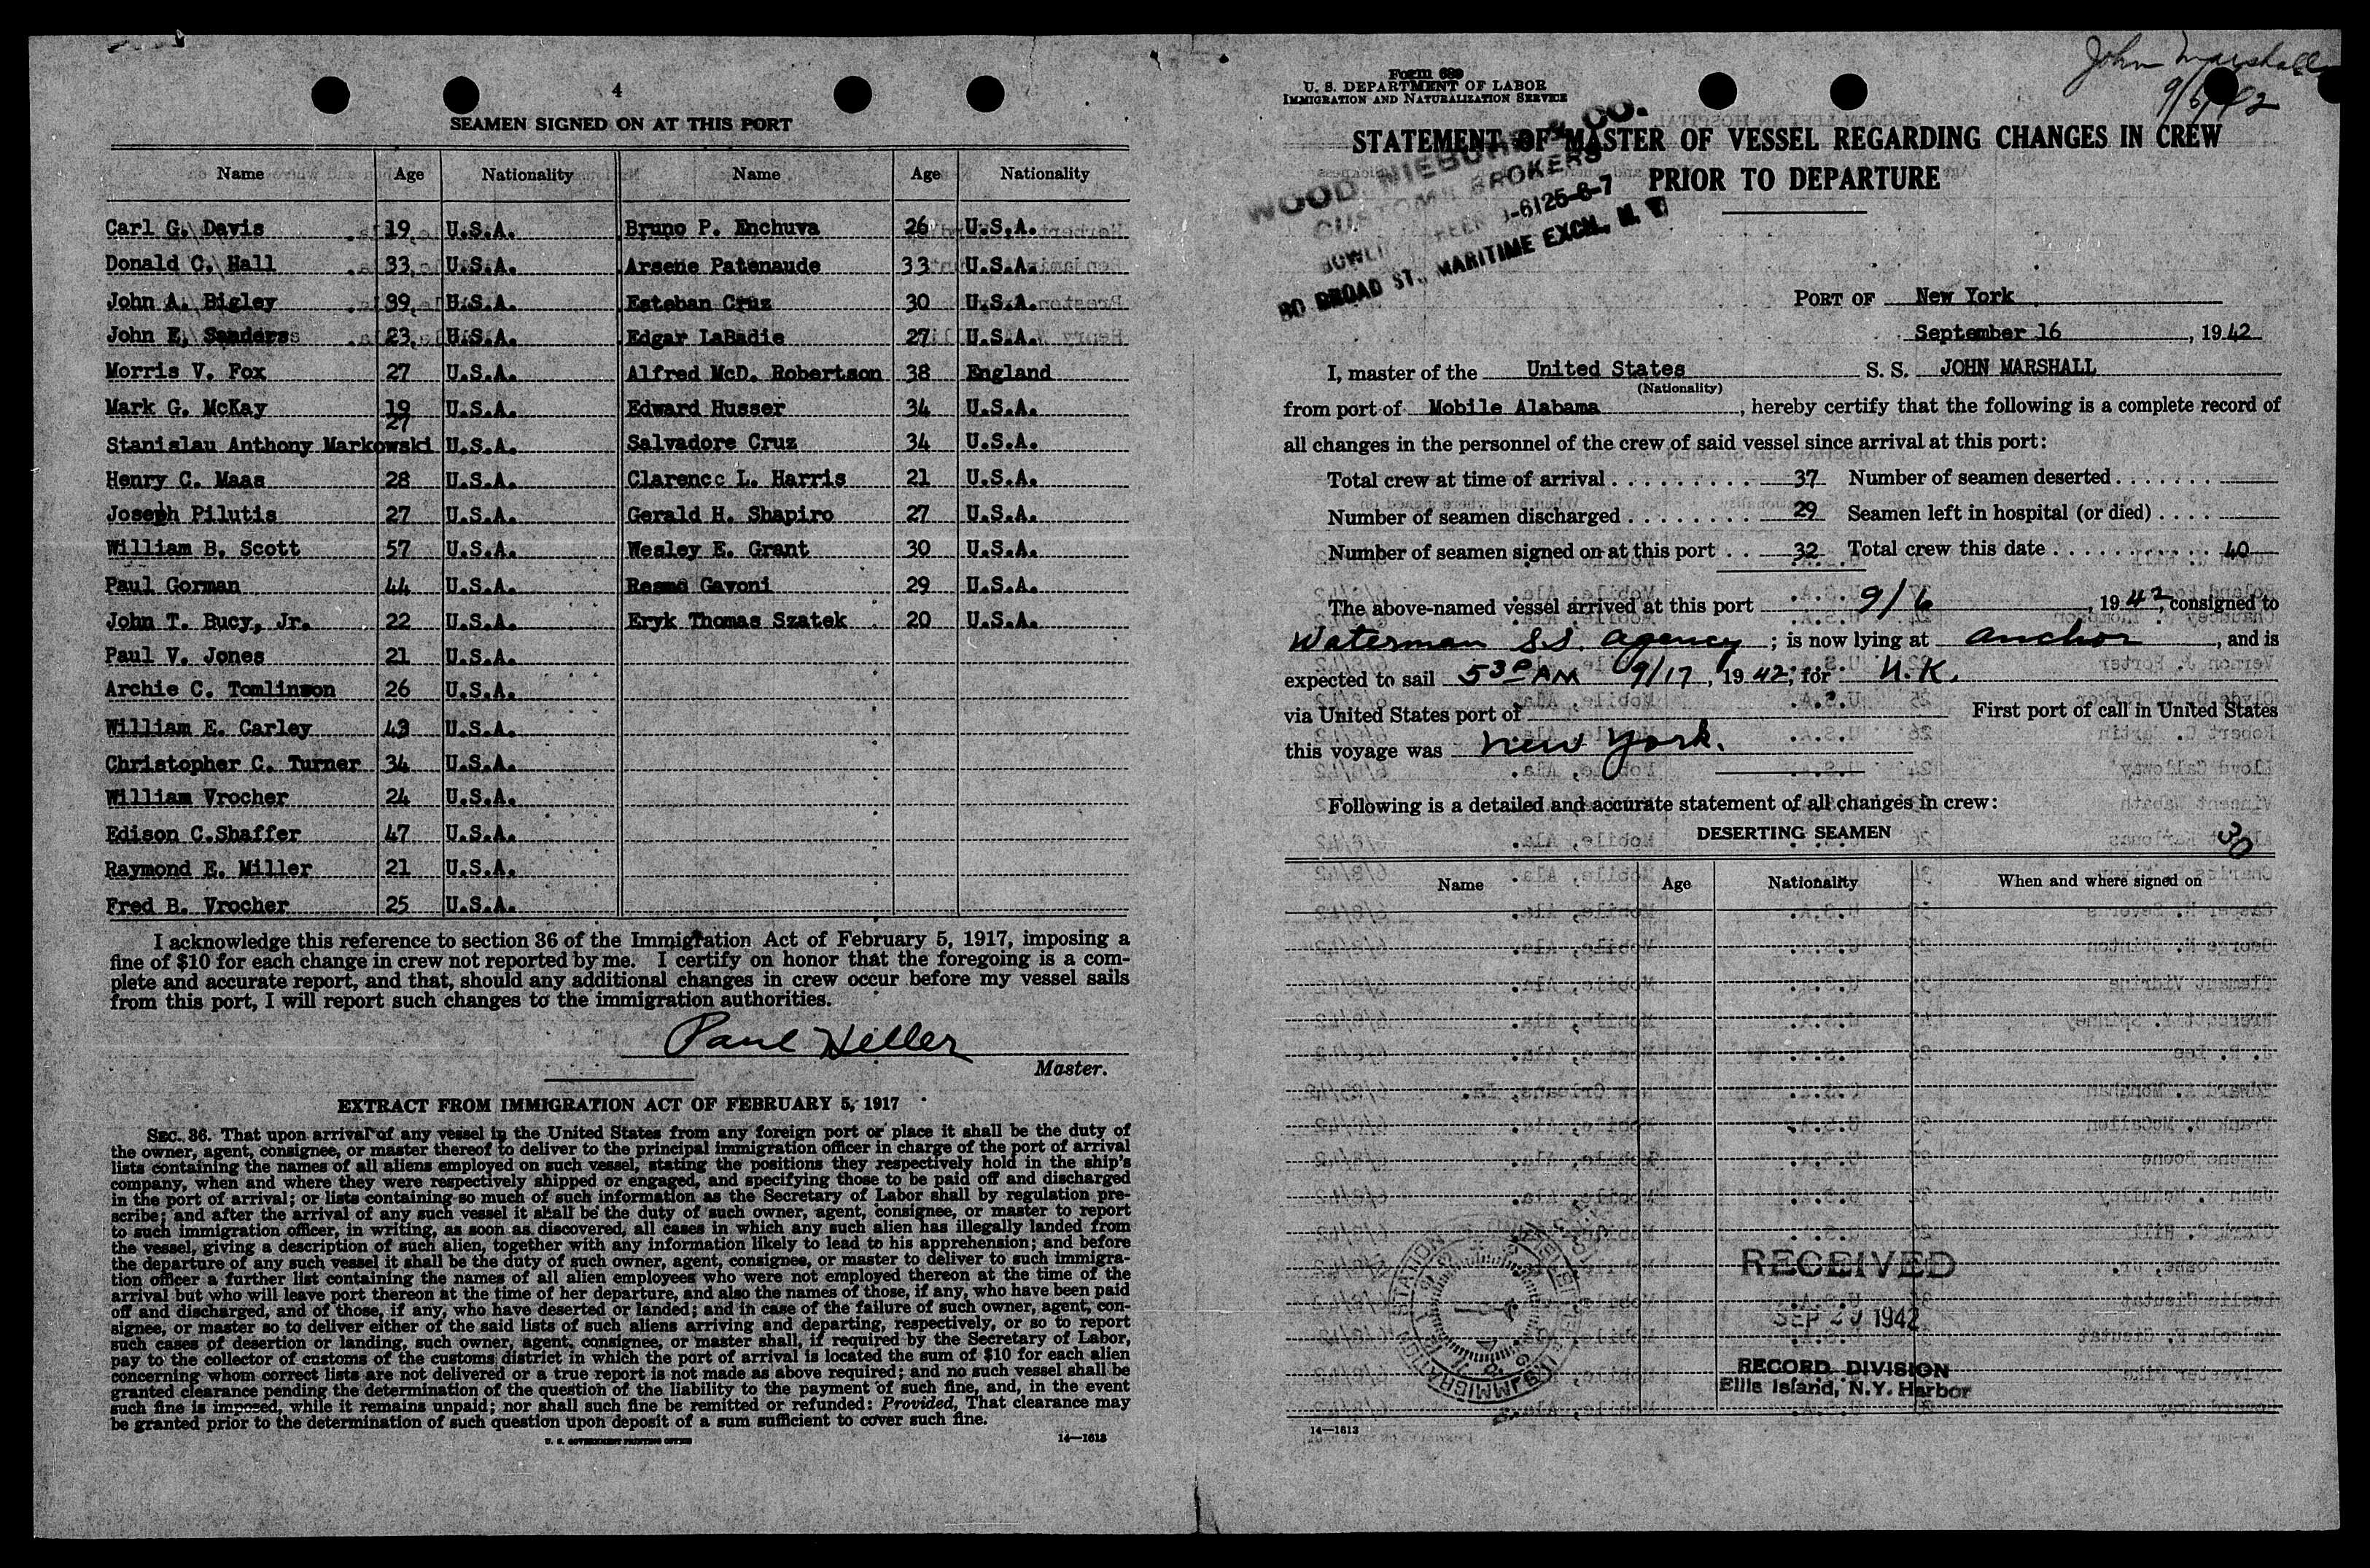 4
SEAMEN SIGNED ON AT THIS PORT
Name Age Nationality Name Age Nationality
Carl G. Davis 19 U.S.A. Bruno P. Enchuva 26 U.S.A.
Donald C. Hall 33 U.S.A. Arsene Patenaude 33 U.S.A.
John A. Bigley 39 U.S.A. Esteban Cruz 30 U.S.A.
John E. Sanders 23 U.S.A. Edgar LaBadie 27 U.S.A.
Morris V. Fox 27 U.S.A. Alfred McD. Robertson 38 England
Mark G. McKay 19 U.S.A. Edward Husser 34 U.S.A.
Stanislau Anthony Markowski 27 U.S.A. Salvadore Cruz 34 U.S.A.
Henry C. Maas 28 U.S.A. Clarence L. Harris 21 U.S.A.
Joseph Pilutis 27 U.S.A. Gerald H. Shapiro 27 U.S.A.
William B. Scott 57 U.S.A. Wesley E. Grant 30 U.S.A.
Paul Gorman 44 U.S.A. Gavoni 29 U.S.A.
John T. Bucy, Jr. 22 U.S.A. Eryk Thomas Szatek 20 U.S.A.
Paul V. Jones 21 U.S.A.
Archie C. Tomlinson 26 U.S.A.
William E. Carley 43 U.S.A.
Christopher C. Turner 34 U.S.A.
William Vrocher 24 U.S.A.
Edison C.Shaffer 47 U.S.A.
Raymond E. Miller 21 U.S.A.
Fred B. Vrocher 25 U.S.A.
I acknowledge this reference to section 36 of the Immigration Act of February 5, 1917, imposing a
fine of $10 for each change in crew not reported by me. I certify on honor that the foregoing is a com-
plete and accurate report, and that, should any additional changes in crew occur before my vessel sails
from this port, I will report such changes to the immigration authorities.
Paul Heller
Master.
EXTRACT FROM IMMIGRATION ACT OF FEBRUARY 5, 1917
SEC. 36. That upon arrival of any vessel in the United States from any foreign port or place it shall be the duty of
the owner, agent, consignee, or master thereof to deliver to the principal immigration officer in charge of the port of arrival
lists containing the names of all aliens employed on such vessel, stating the positions they respectively hold in the ship's
company, when and where they were respectively shipped or engaged, and specifying those to be paid off and discharged
in the port of arrival; or lists containing so much of such information as the Secretary of Labor shall by regulation pre-
scribe; and after the arrival of any such vessel it shall be the duty of such owner, agent, consignee, or master to report
to such immigration officer, in writing, as soon as discovered, all cases in which any such alien has illegally landed from
the vessel, giving a description of such alien, together with any information likely to lead to his apprehension; and before
the departure of any such vessel it shall be the duty of such owner, agent, consignee, or master to deliver to such immigra-
tion officer a further list containing the names of all alien employees who were not employed thereon at the time of the
arrival but who will leave port thereon at the time of her departure, and also the names of those, if any, who have been paid
off and discharged, and of those, if any, who have deserted or landed; and in case of the failure of such owner, agent, con-
signee, or master so to deliver either of the said lists of such aliens arriving and departing, respectively, or so to report
such cases of desertion or landing, such owner, agent, consignee, or master shall, if required by the Secretary of Labor,
pay to the collector of customs of the customs district in which the port of arrival is located the sum of $10 for each alien
concerning whom correct lists are not delivered or a true report is not made as above required; and no such vessel shall be
granted clearance pending the determination of the question of the liability to the payment of such fine, and, in the event
such fine is imposed, while it remains unpaid; nor shall such fine be remitted or refunded: Provided, That clearance may
be granted prior to the determination of such question upon deposit of a sum sufficient to cover such fine.
U. S. GOVERNMENT PRINTING OFFICE 14—1613
John Marshall
9/6/42
Form 689
U. S. DEPARTMENT OF LABOR
IMMIGRATION AND NATURALIZATION SERVICE
STATEMENT OF MASTER OF VESSEL REGARDING CHANGES IN CREW
PRIOR TO DEPARTURE
WOOD, NIEBUHR & CO.
CUSTOM BROKERS
BOWLING GREEN 9-6125-6-7
80 BROAD ST., MARITIME EXCH., N. Y.
PORT OF New York
September 16, 1942
I, master of the United States S. S. JOHN MARSHALL
(Nationality)
from port of Mobile Alabama, hereby certify that the following is a complete record of
all changes in the personnel of the crew of said vessel since arrival at this port:
Total crew at time of arrival 37 Number of seamen deserted
Number of seamen discharged 29 Seamen left in hospital (or died)
Number of seamen signed on at this port 32 Total crew this date 40
The above-named vessel arrived at this port 9/6, 1942, consigned to
Waterman S.S. Agency; is now lying at anchor, and is
expected to sail 5 30 AM 9/17, 1942, for U.K.
via United States port of First port of call in United States
this voyage was New York.
Following is a detailed and accurate statement of all changes in crew:
DESERTING SEAMEN
30
Name Age Nationality When and where signed on
RECEIVED
SEP 29 1942
RECORD DIVISION
Ellis Island, N.Y. Harbor
14—1613